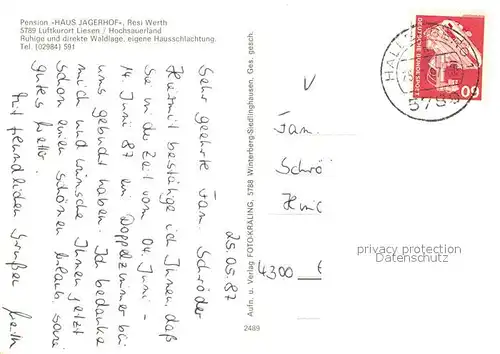 Pension »HAUS JAGERHOF«, Resi Werth
5789 Luftkurort Liesen / Hochsauerland
Ruhige und direkte Waldlage, eigene Hausschlachtung.
Tel. (02984) 591
25.05.87
Sehr geehrte Fam. Schröder
Hiermit bestätige ich Ihnen, daß
Sie in der Zeit vom 04. Juni -
14. Juni 87 ein Doppelzimmer bei
uns gebucht haben. Ich bedanke
mich und wünsche Ihnen jetzt
schon einen schönen Urlaub, sowie
gutes Wetter.
Mit freundlichen Grüßen
Aufn. u. Verlag FOTO-KRÄLING, 5788 Winterberg-Siedlinghausen, Ges. gesch.
2489
Fam.
Schrö
4300
HALLENBERG
5789
60
DEUTSCHE BUNDESPOST
privacy protection